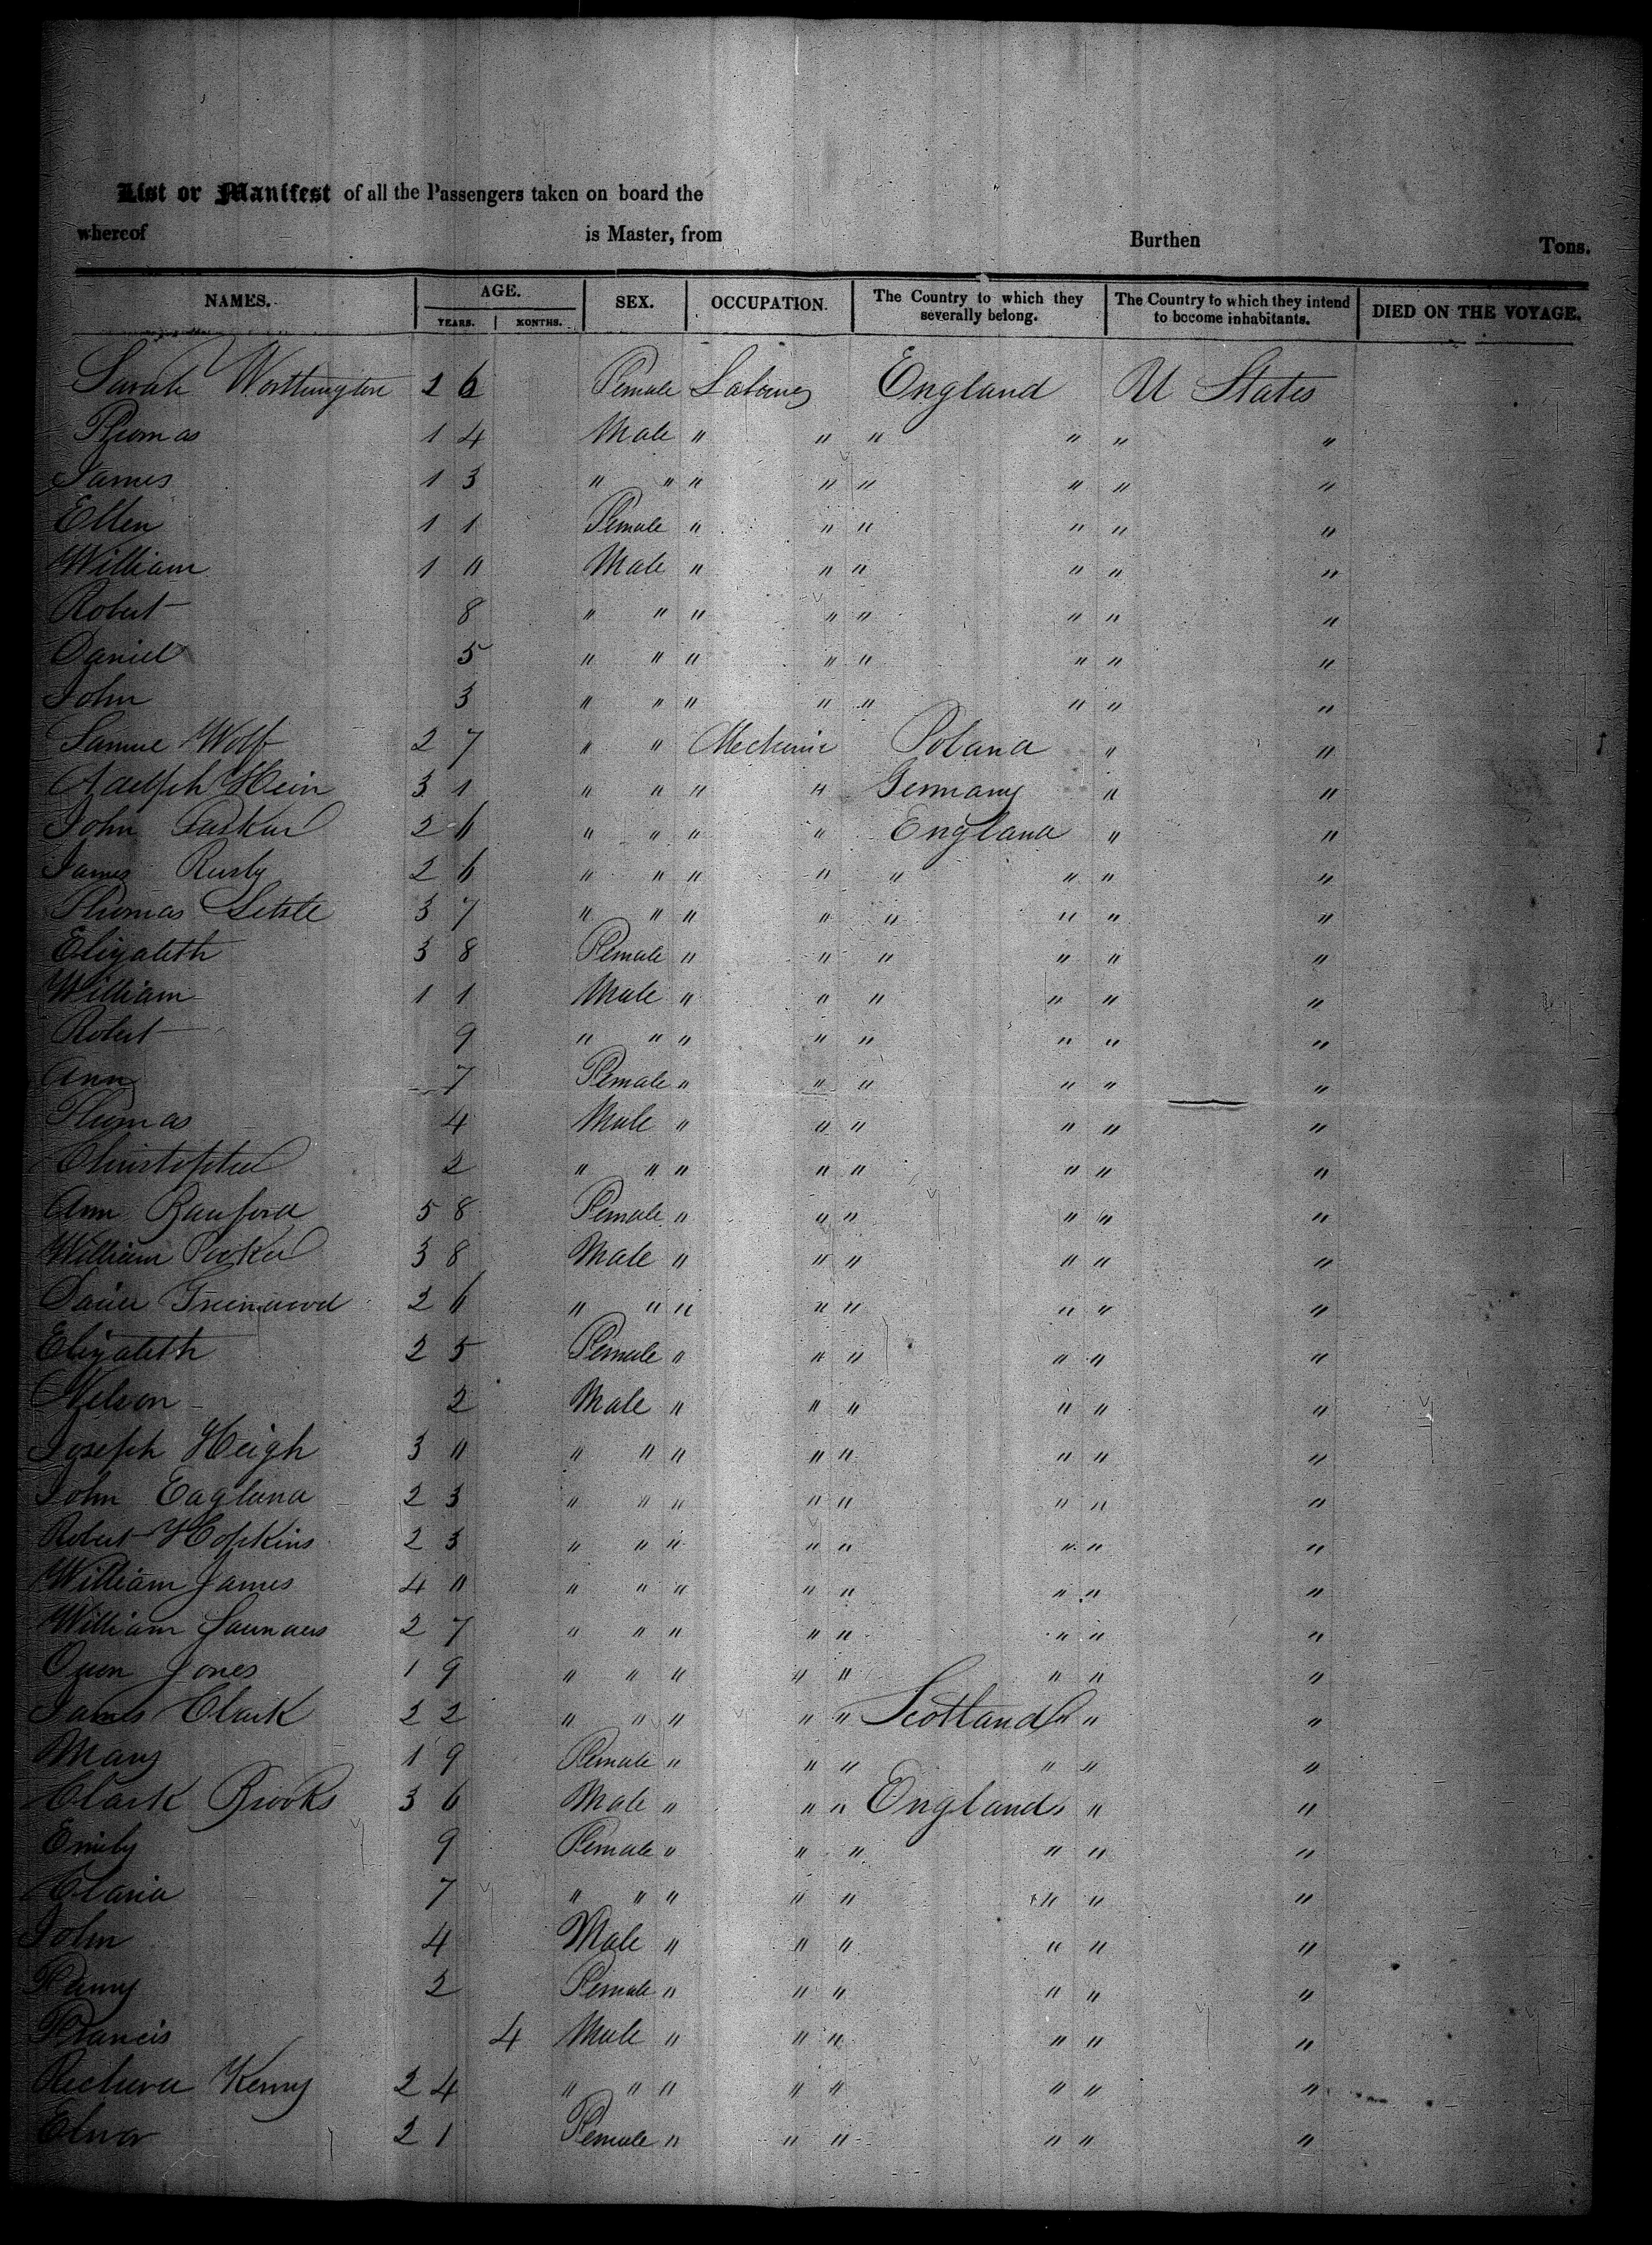 List or Manifest of all the Passengers taken on board the
whereof is Master, from Burthen Tons.
NAMES. AGE. SEX. OCCUPATION. The Country to which they severally belong. The Country to which they intend to become inhabitants. DIED ON THE VOYAGE.
YEARS. MONTHS.
Sarah Worthington 26 Female England U States
Thomas 14 Male " " " " " "
James 13 " " " " " " " "
Ellen 11 Female " " " " " "
William 1 " Male " " " " " "
Robert 8 " " " " " " " "
Daniel 5 " " " " " " " "
John 3 " " " " " " " "
Samue Wolf 27 " " Mechanic Poland " "
Adolph Hein 31 " " " " Germany " "
John 26 " " " " England " "
James 26 " " " " " " " "
Thomas 37 " " " " " " " "
Elizabeth 38 Female " " " " " "
William 11 Male " " " " " "
Robert 9 " " " " " " " "
Ann 7 Female " " " " " "
Thomas 4 Male " " " " " "
Christopher 2 " " " " " " " "
Ann 58 Female " " " " " "
William 38 Male " " " " " "
Greenwood 26 " " " " " " " "
Elizabeth 25 Female " " " " " "
Nelson 2 Male " " " " " "
Joseph Heigh 3 " " " " " " " " "
John Eagland 23 " " " " " " " "
Robert Hopkins 23 " " " " " " " "
William James 4 " " " " " " " " "
William Saunders 27 " " " " " " " "
Owen Jones 19 " " " " " " " "
James Clark 22 " " " " Scotland " " "
Mary 19 Female " " " " " "
Clark Brooks 36 Male " " " England " " "
Emily 9 Female " " " " " "
Claria 7 " " " " " " " "
John 4 Male " " " " " "
Fanny 2 Female " " " " " "
Francis 4 Male " " " " " "
Kenny 24 " " " " " " " "
21 Female " " " " " "